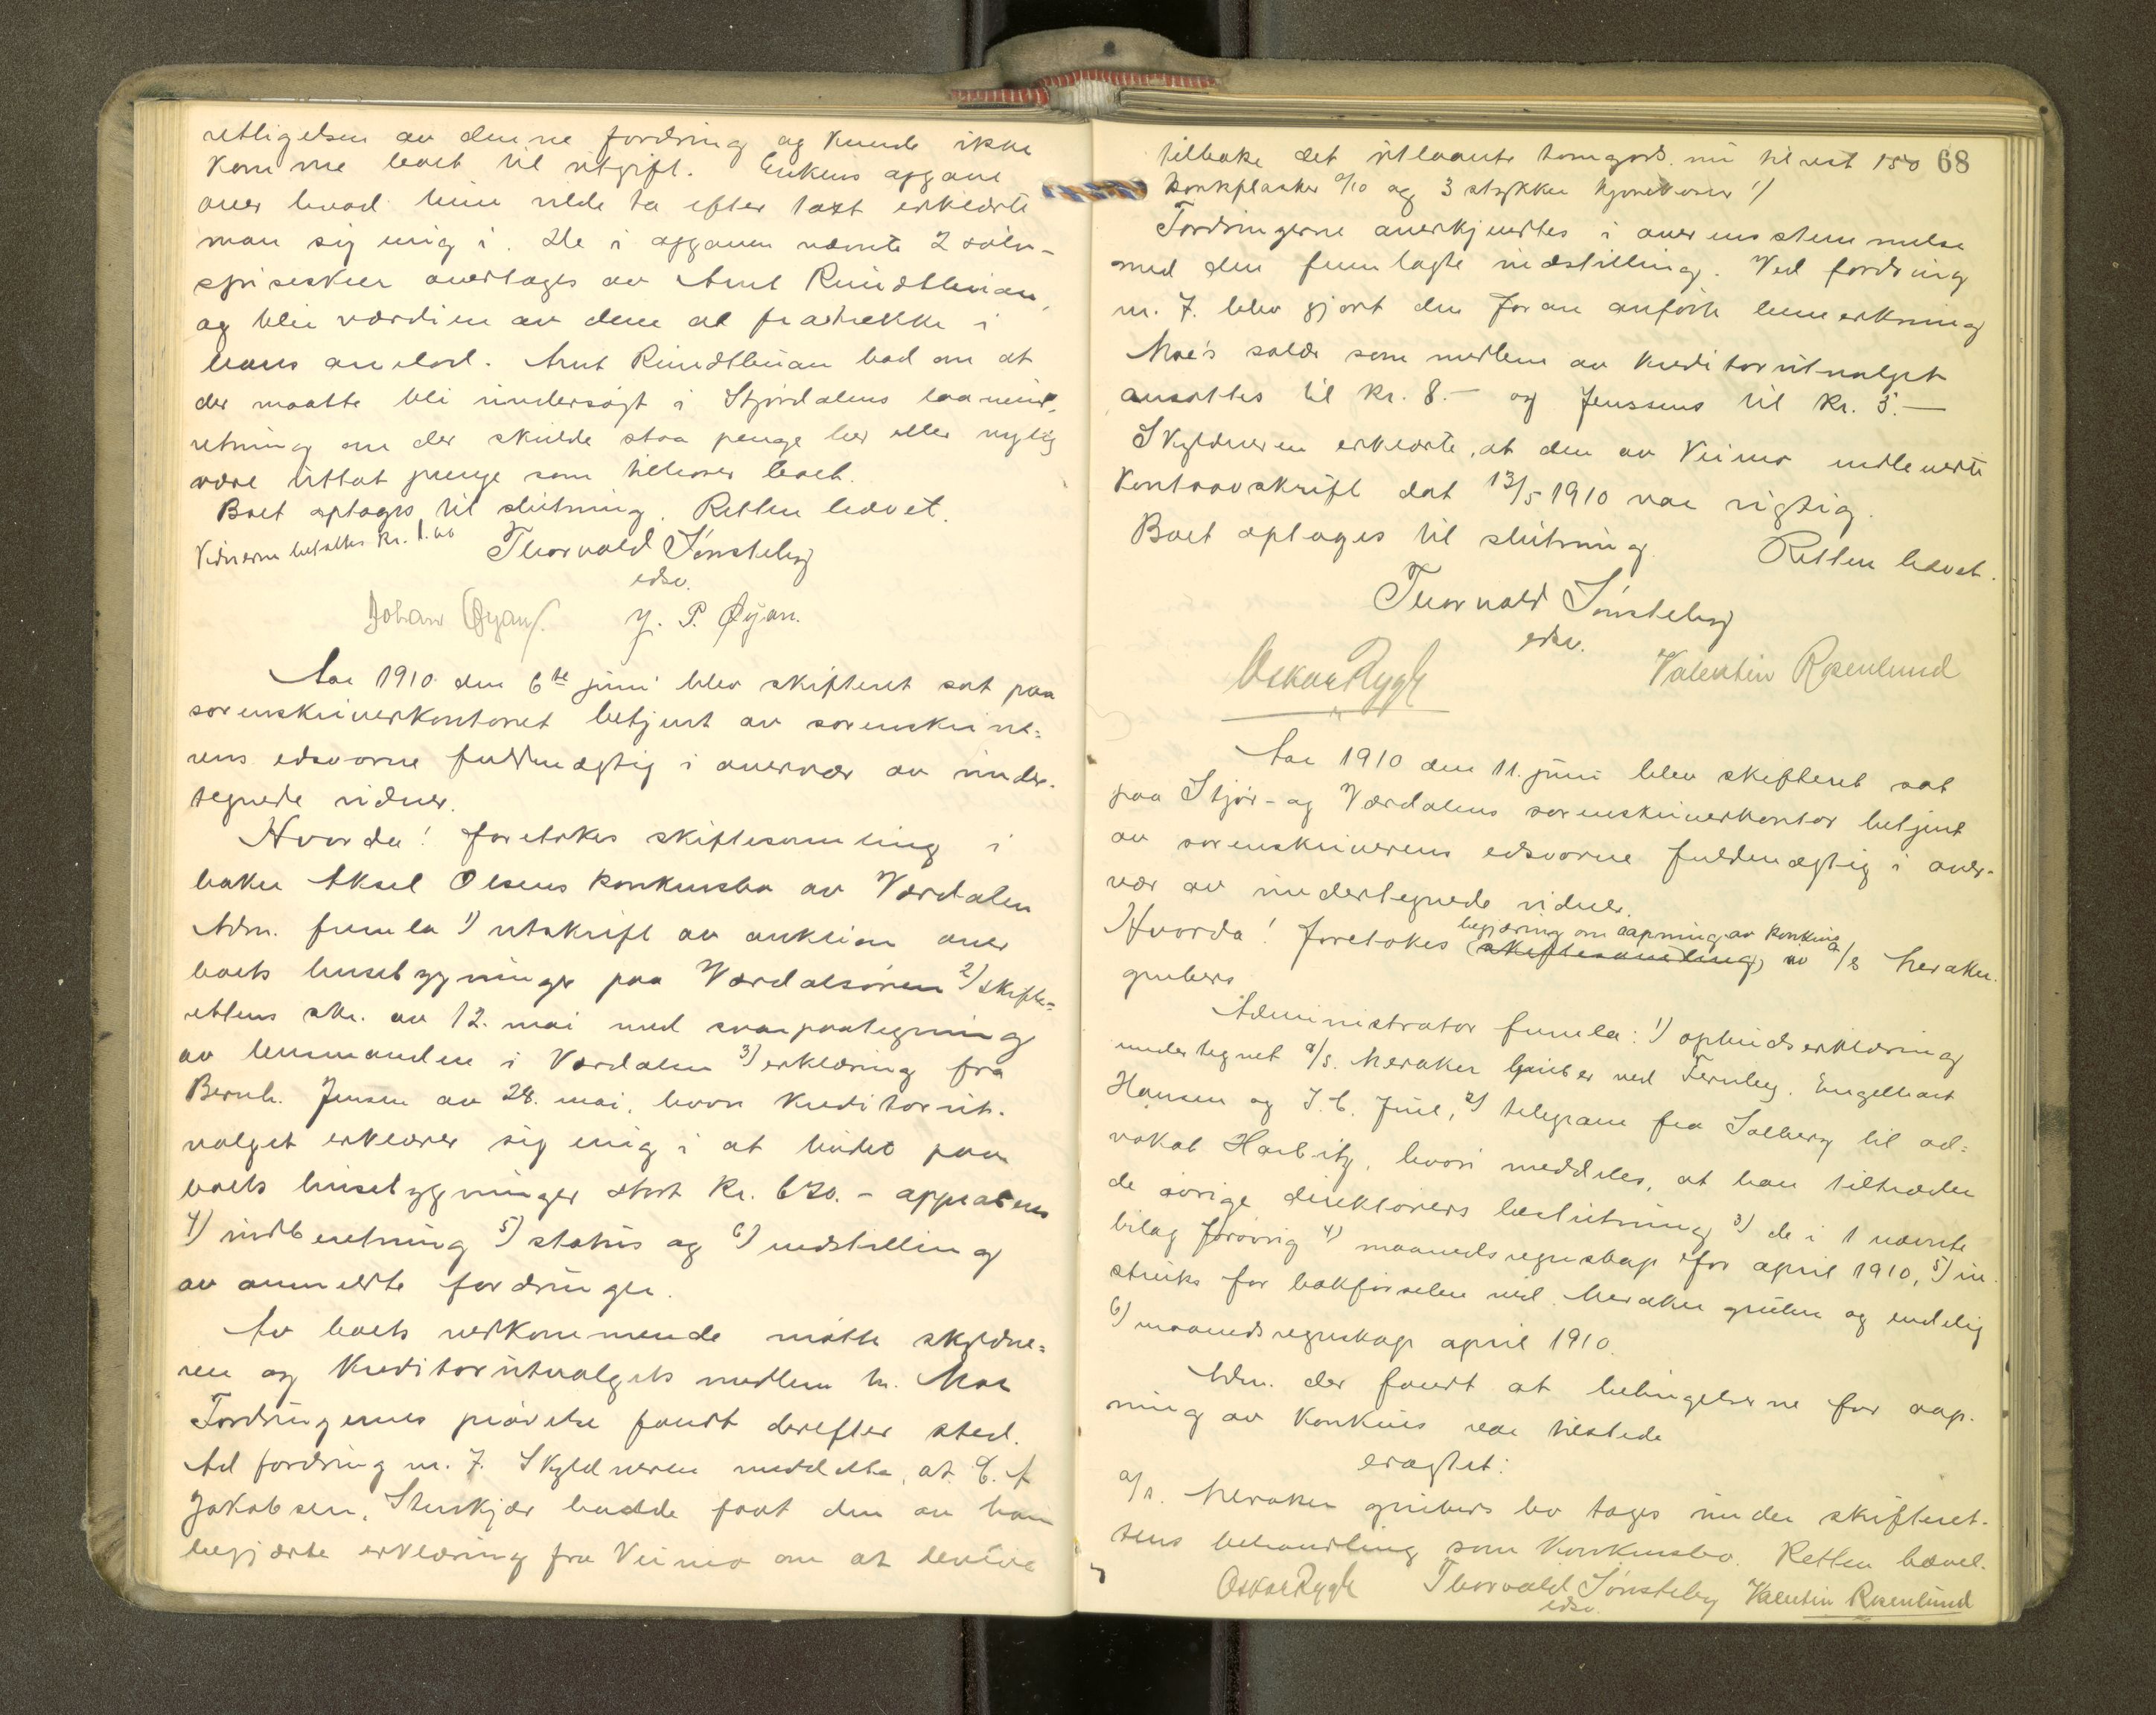 retligelsen av denne fordring og kunde ikke
komme boet til utgift. Enkens opgave
over hvad hun vilde ta efter taxt erklærte
man sig enig i. De i opgaven nævnte 2 sølv-
spiseskeer overtages av Arnt Rindtlevian,
og blir værdien av dem at fratrække i
hans arvelod. Arnt Rindtlevian bad om at
der maatte bli undersøgt i Stjørdalens laaneind-
retning om der skulde staa penge her eller nylig
være uttat penge som tilhører boet.
Boet optages til slutning. Retten hævet.
Vidnerne betaltes kr. 1.00 Thorvald Sønsteby
edsv.
Johan Øyan. J. P. Øyan.
Aar 1910 den 6te juni blev skifteret sat paa
sorenskriverkontoret betjent av sorenskrive-
rens edsvorne fuldmægtig i overvær av under-
tegnede vidner.
Hvorda! foretokes skiftesamling i
baker Aksel Olsens konkursbo av Værdalen
Adm. fremla 1) utskrift av auktion over
boets husebygninger paa Værdalsøren 2) skifte-
rettens skr. av 12. mai med svarpaategning
av lensmanden i Værdalen 3) erklæring fra
Bernh. Jensen av 28. mai, hvor kreditorut-
valget erklærer sig enig i at budet paa
boets husebygninger stort kr. 620.- approberes
4) indberetning 5) status og 6) indstilling
av anmeldte fordringer.
Av boets vedkommende møtte skyldne-
ren og kreditorutvalgets medlem hr. Moe
Fordringernes prøvelse fandt derefter sted.
Ad fordring nr. 7. Skyldneren meddelte, at C. A
Jakobsen, Stenkjær hadde faat den av ham
begjærte erklæring fra Veimo om at levere
68
tilbake det utlaante tomgods nu til rest 150
konkflasker a/10 og 3 stykker 1)
Fordringerne anerkjendtes i overensstemmelse
med den fremlagte indstilling. Ved fordring
nr. 7. blev gjort den foran anførte bemerkning
Moe's salær som medlem av kreditorutvalget
ansattes til kr. 8.- og Jenssens til kr. 5.-
Skyldneren erklærte, at den av Veimo indleverte
kontoavskrift dat 13/5 1910 var rigtig.
Boet optages til slutning. Retten hævet.
Thorvald Sønsteby
edsv.
Oskar Rygh Valentin Rosenlund
Aar 1910 den 11. juni blev skifteret sat
paa Stjør- og Værdalens sorenskriverkontor betjent
av sorenskriverens edsvorne fuldmægtig i over-
vær av undertegnede vidner.
begjæring om aapning av konkurs
Hvorda! Foretokes (skiftesamling) av a/s Meraker
grubers
Administrator fremla: 1) opbudserklæring
undertegnet a/s. Meraker gruber ved Fernley. Engelhart
Hansen og J. C. Juul, 2) telegram fra Solberg til ad-
vokat Harbitz, hvori meddeles, at han tiltræder
de øvrige direktørers beslutning 3) de i 1 nævnte
bilag forøvrig 4) maanedsregnskap for april 1910, 5) in-
struks for bokførselen ved Meraker gruber og endelig
6) maanedsregnskap april 1910.
Adm. der fandt at betingelserne for aap-
ning av konkurs var tilstede
eragtet:
a/s. Meraker grubers bo tages under skifteret-
tens behandling som konkursbo. Retten hævet.
Oskar Rygh Thorvald Sønsteby Valentin Rosenlund
edsv.